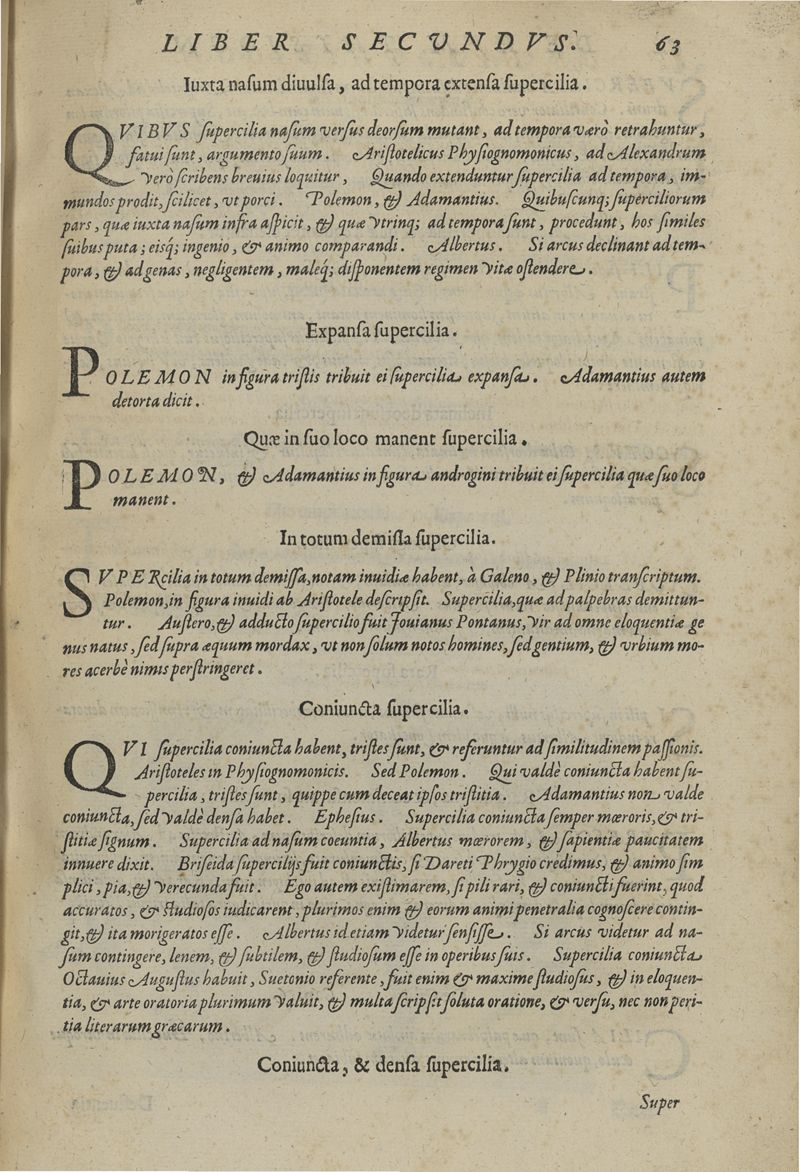 LIBER SECVNDVS. 63
Iuxta naſum diuulſa, ad tempora extenſa ſupercilia.
QVIBVS ſupercilia naſum verſus deorſum mutant, ad tempora værò retrahuntur,
fatui ſunt, argumento ſuum. Ariſtotelicus Phyſiognomonicus, ad Alexandrum
verò ſcribens breuius loquitur, Quando extenduntur ſupercilia ad tempora, im-
mundos prodit, ſcilicet, vt porci. Polemon, & Adamantius. Quibuſcunq; ſuperciliorum
pars, quæ iuxta naſum infra aſpicit, & quæ vtrinq; ad tempora ſunt, procedunt, hos ſimiles
ſuibus puta; eisq́; ingenio, & animo comparandi. Albertus. Si arcus declinant ad tem-
pora, & ad genas, negligentem, maleq́; diſponentem regimen vitæ oſtendere.
Expanſa ſupercilia.
POLEMON in figura triſtis tribuit ei ſupercilia expanſa. Adamantius autem
detorta dicit.
Quæ in ſuo loco manent ſupercilia.
POLEMON, & Adamantius in figura androgini tribuit ei ſupercilia quæ ſuo loco
manent.
In totum demiſſa ſupercilia.
SVPERcilia in totum demiſſa, notam inuidiæ habent, à Galeno, & Plinio tranſcriptum.
Polemon, in figura inuidi ab Ariſtotele deſcripſit. Supercilia, quæ ad palpebras demittun-
tur. Auſtero, & adducto ſupercilio fuit Jouianus Pontanus, vir ad omne eloquentiæ ge
nus natus, ſed ſupra æquum mordax, vt non ſolum notos homines, ſed gentium, & vrbium mo-
res acerbè nimis perſtringeret.
Coniuncta ſupercilia.
QVI ſupercilia coniuncta habent, triſtes ſunt, & referuntur ad ſimilitudinem paſſionis.
Ariſtoteles in Phyſiognomonicis. Sed Polemon. Qui valdè coniuncta habent ſu-
percilia, triſtes ſunt, quippe cum deceat ipſos triſtitia. Adamantius non valde
coniuncta, ſed valdè denſa habet. Epheſius. Supercilia coniuncta ſemper mœroris, & tri-
ſtitiæ ſignum. Supercilia ad naſum coeuntia, Albertus mœrorem, & ſapientiæ paucitatem
innuere dixit. Briſeida ſupercilijs fuit coniunctis, ſi Dareti Phrygio credimus, & animo ſim
plici, pia, & verecunda fuit. Ego autem exiſtimarem, ſi pili rari, & coniuncti fuerint, quod
accuratos, & ſtudioſos iudicarent, plurimos enim & eorum animi penetralia cognoſcere contin-
git, & ita morigeratos eſſe. Albertus id etiam videtur ſenſiſſe. Si arcus videtur ad na-
ſum contingere, lenem, & ſubtilem, & ſtudioſum eſſe in operibus ſuis. Supercilia coniuncta
Octauius Auguſtus habuit, Suetonio referente, fuit enim & maxime ſtudioſus, & in eloquen-
tia, & arte oratoria plurimum valuit, & multa ſcripſit ſoluta oratione, & verſu, nec non peri-
tia literarum græcarum.
Coniuncta, & denſa ſupercilia.
Super